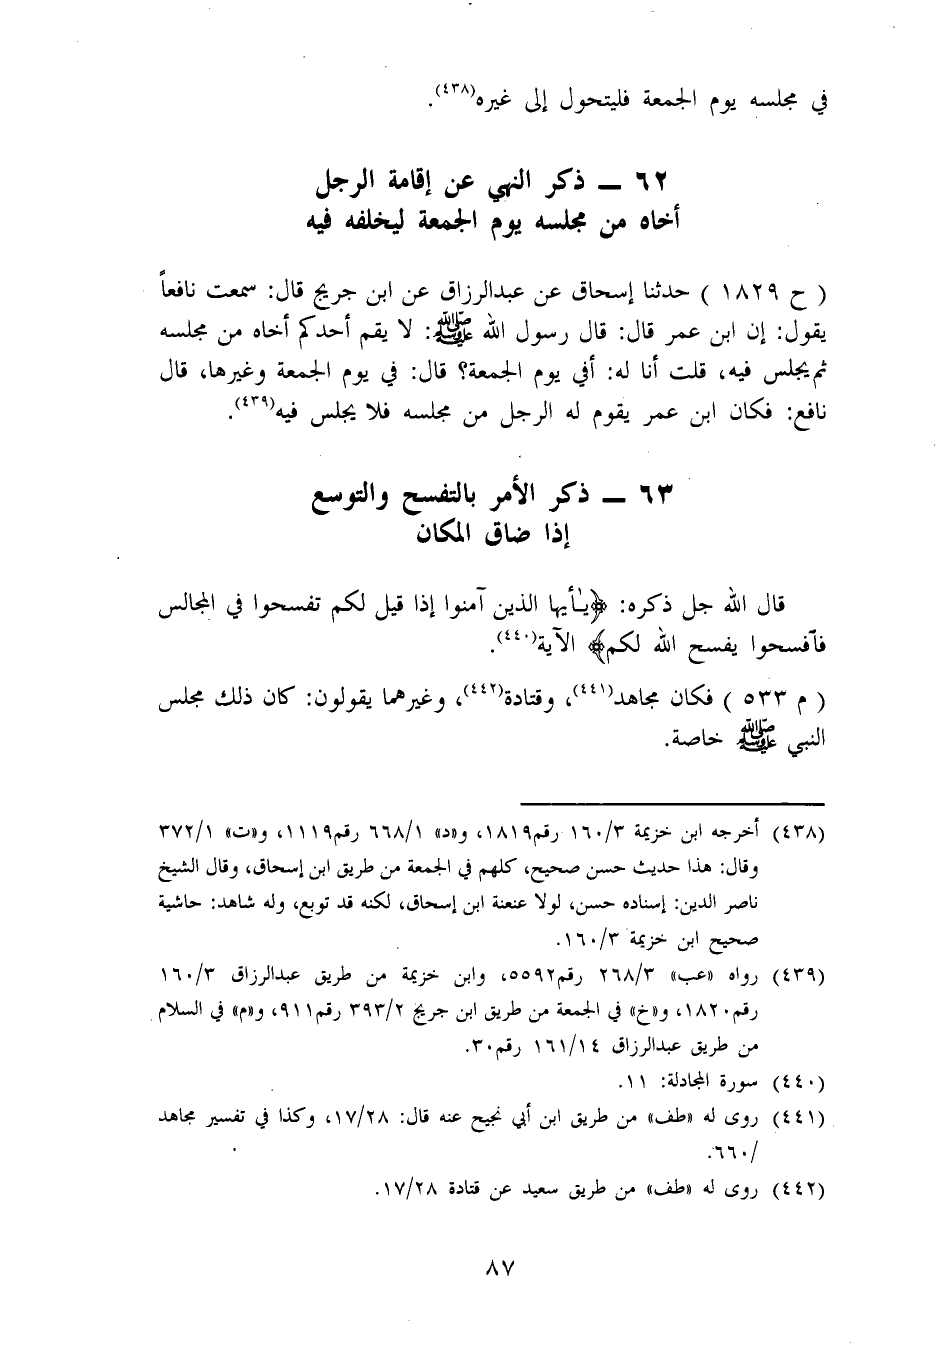 في مجلسه يوم الجمعة فليتحول إلى غيره(٤٣٨).
٦٢ ــ ذكر النهي عن إقامة الرجل
أخاه من مجلسه يوم الجمعة ليخلفه فيه
( ح ١٨٢٩ ) حدثنا إسحاق عن عبدالرزاق عن ابن جريج قال: سمعت نافعاً
يقول: إن ابن عمر قال: قال رسول الله ﷺ: لا يقم أحدكم أخاه من مجلسه
ثم يجلس فيه، قلت أنا له: أفي يوم الجمعة؟ قال: في يوم الجمعة وغيرها، قال
نافع: فكان ابن عمر يقوم له الرجل من مجلسه فلا يجلس فيه(٤٣٩).
٦٣ ــ ذكر الأمر بالتفسح والتوسع
إذا ضاق المكان
قال الله جل ذكره: ﴿يـٰأيها الذين آمنوا إذا قيل لكم تفسحوا في المجالس
فآفسحوا يفسح الله لكم﴾ الآية(٤٤٠).
( م ٥٣٣ ) فكان مجاهد(٤٤١)، وقتادة(٤٤٢)، وغيرهما يقولون: كان ذلك مجلس
النبي ﷺ خاصة.
(٤٣٨) أخرجه ابن خزيمة ١٦٠/٣ رقم١٨١٩، و«د» ٦٦٨/١ رقم١١١٩، و«ت» ٣٧٢/١
وقال: هذا حديث حسن صحيح، كلهم في الجمعة من طريق ابن إسحاق، وقال الشيخ
ناصر الدين: إسناده حسن، لولا عنعنة ابن إسحاق، لكنه قد توبع، وله شاهد: حاشية
صحيح ابن خزيمة ١٦٠/٣.
(٤٣٩) رواه «عب» ٢٦٨/٣ رقم٥٥٩٢، وابن خزيمة من طريق عبدالرزاق ١٦٠/٣
رقم١٨٢٠، و«خ» في الجمعة من طريق ابن جريج ٣٩٣/٢ رقم٩١١، و«م» في السلام
من طريق عبدالرزاق ١٦١/١٤ رقم٣٠.
(٤٤٠) سورة المجادلة: ١١.
(٤٤١) روى له «طف» من طريق ابن أبي نجيح عنه قال: ١٧/٢٨، وكذا في تفسير مجاهد
/٦٦٠.
(٤٤٢) روى له «طف» من طريق سعيد عن قتادة ١٧/٢٨.
٨٧